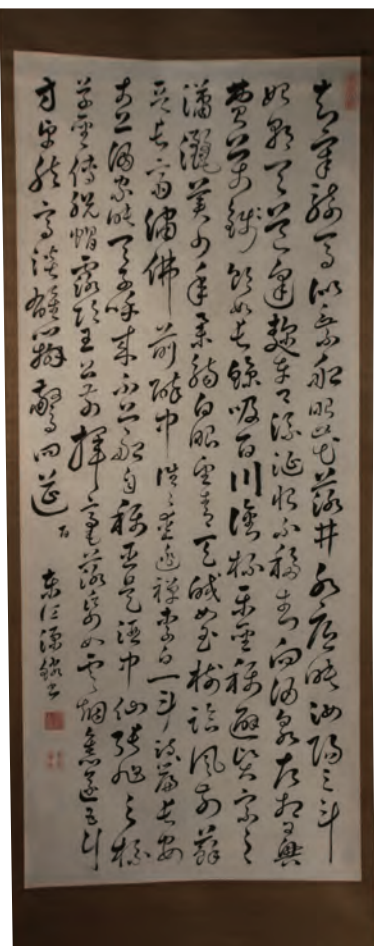 知章騎馬似乘船眼花落井水底眠汝陽三斗
始朝天道逢麴車口流涎恨不移封向酒泉左相日興
費萬錢飲如長鯨吸百川銜杯樂聖稱避賢宗之
瀟灑美少年舉觴白眼望青天皎如玉樹臨風前蘇
晉長齋繡佛前醉中往往愛逃禪李白一斗詩篇長安
市上酒家眠天子呼來不上船自稱臣是酒中仙張旭三杯
草聖傳脫帽露頂王公前揮毫落紙如雲烟焦遂五斗
方卓然高談雄辯驚四筵 百
東江源鱗書